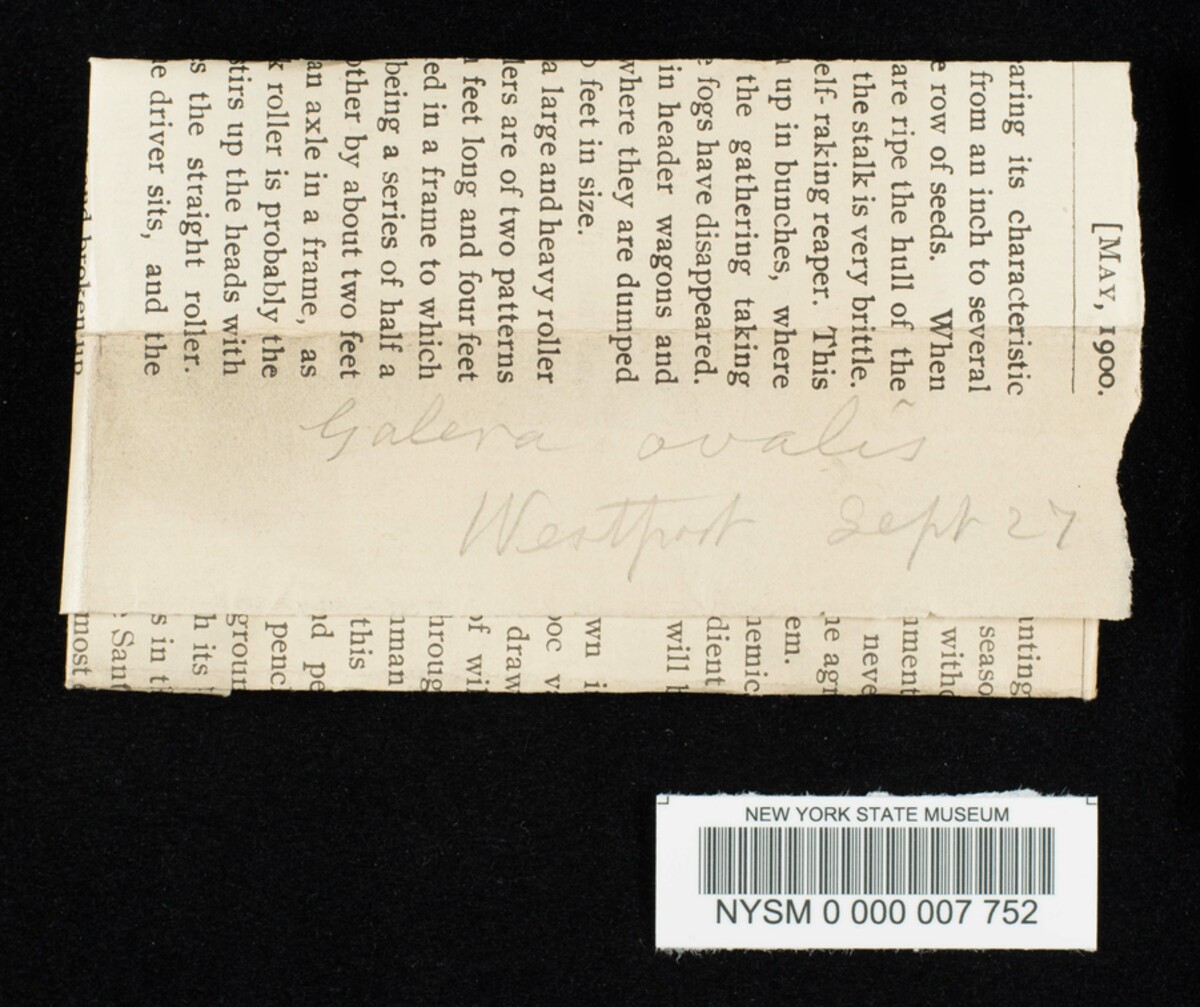 [MAY, 1900.
aring its characteristic
from an inch to several
e row of seeds. When
are ripe the hull of the
the stalk is very brittle.
elf-raking reaper. This
up in bunches, where
the gathering taking
e fogs have disappeared.
in header wagons and
where they are dumped
feet in size.
a large and heavy roller
lers are of two patterns
feet long and four feet
ed in a frame to which
being a series of half a
other by about two feet
an axle in a frame, as
k roller is probably the
stirs up the heads with
s the straight roller.
e driver sits, and the
and broken up
Galera ovalis
Westport Sept 27
unting
seaso
witho
nment
neve
he agr
em.
hemic
dient
will
wn i
oc v
draw
of wil
hroug
nman
this
nd pe
penci
groun
h its
s in t
Sant
most
NEW YORK STATE MUSEUM
NYSM 0 000 007 752